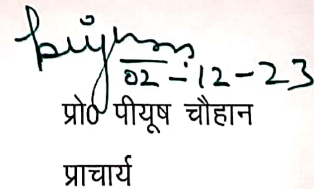 02-12-23
प्रो0 पीयूष चौहान
प्राचार्य